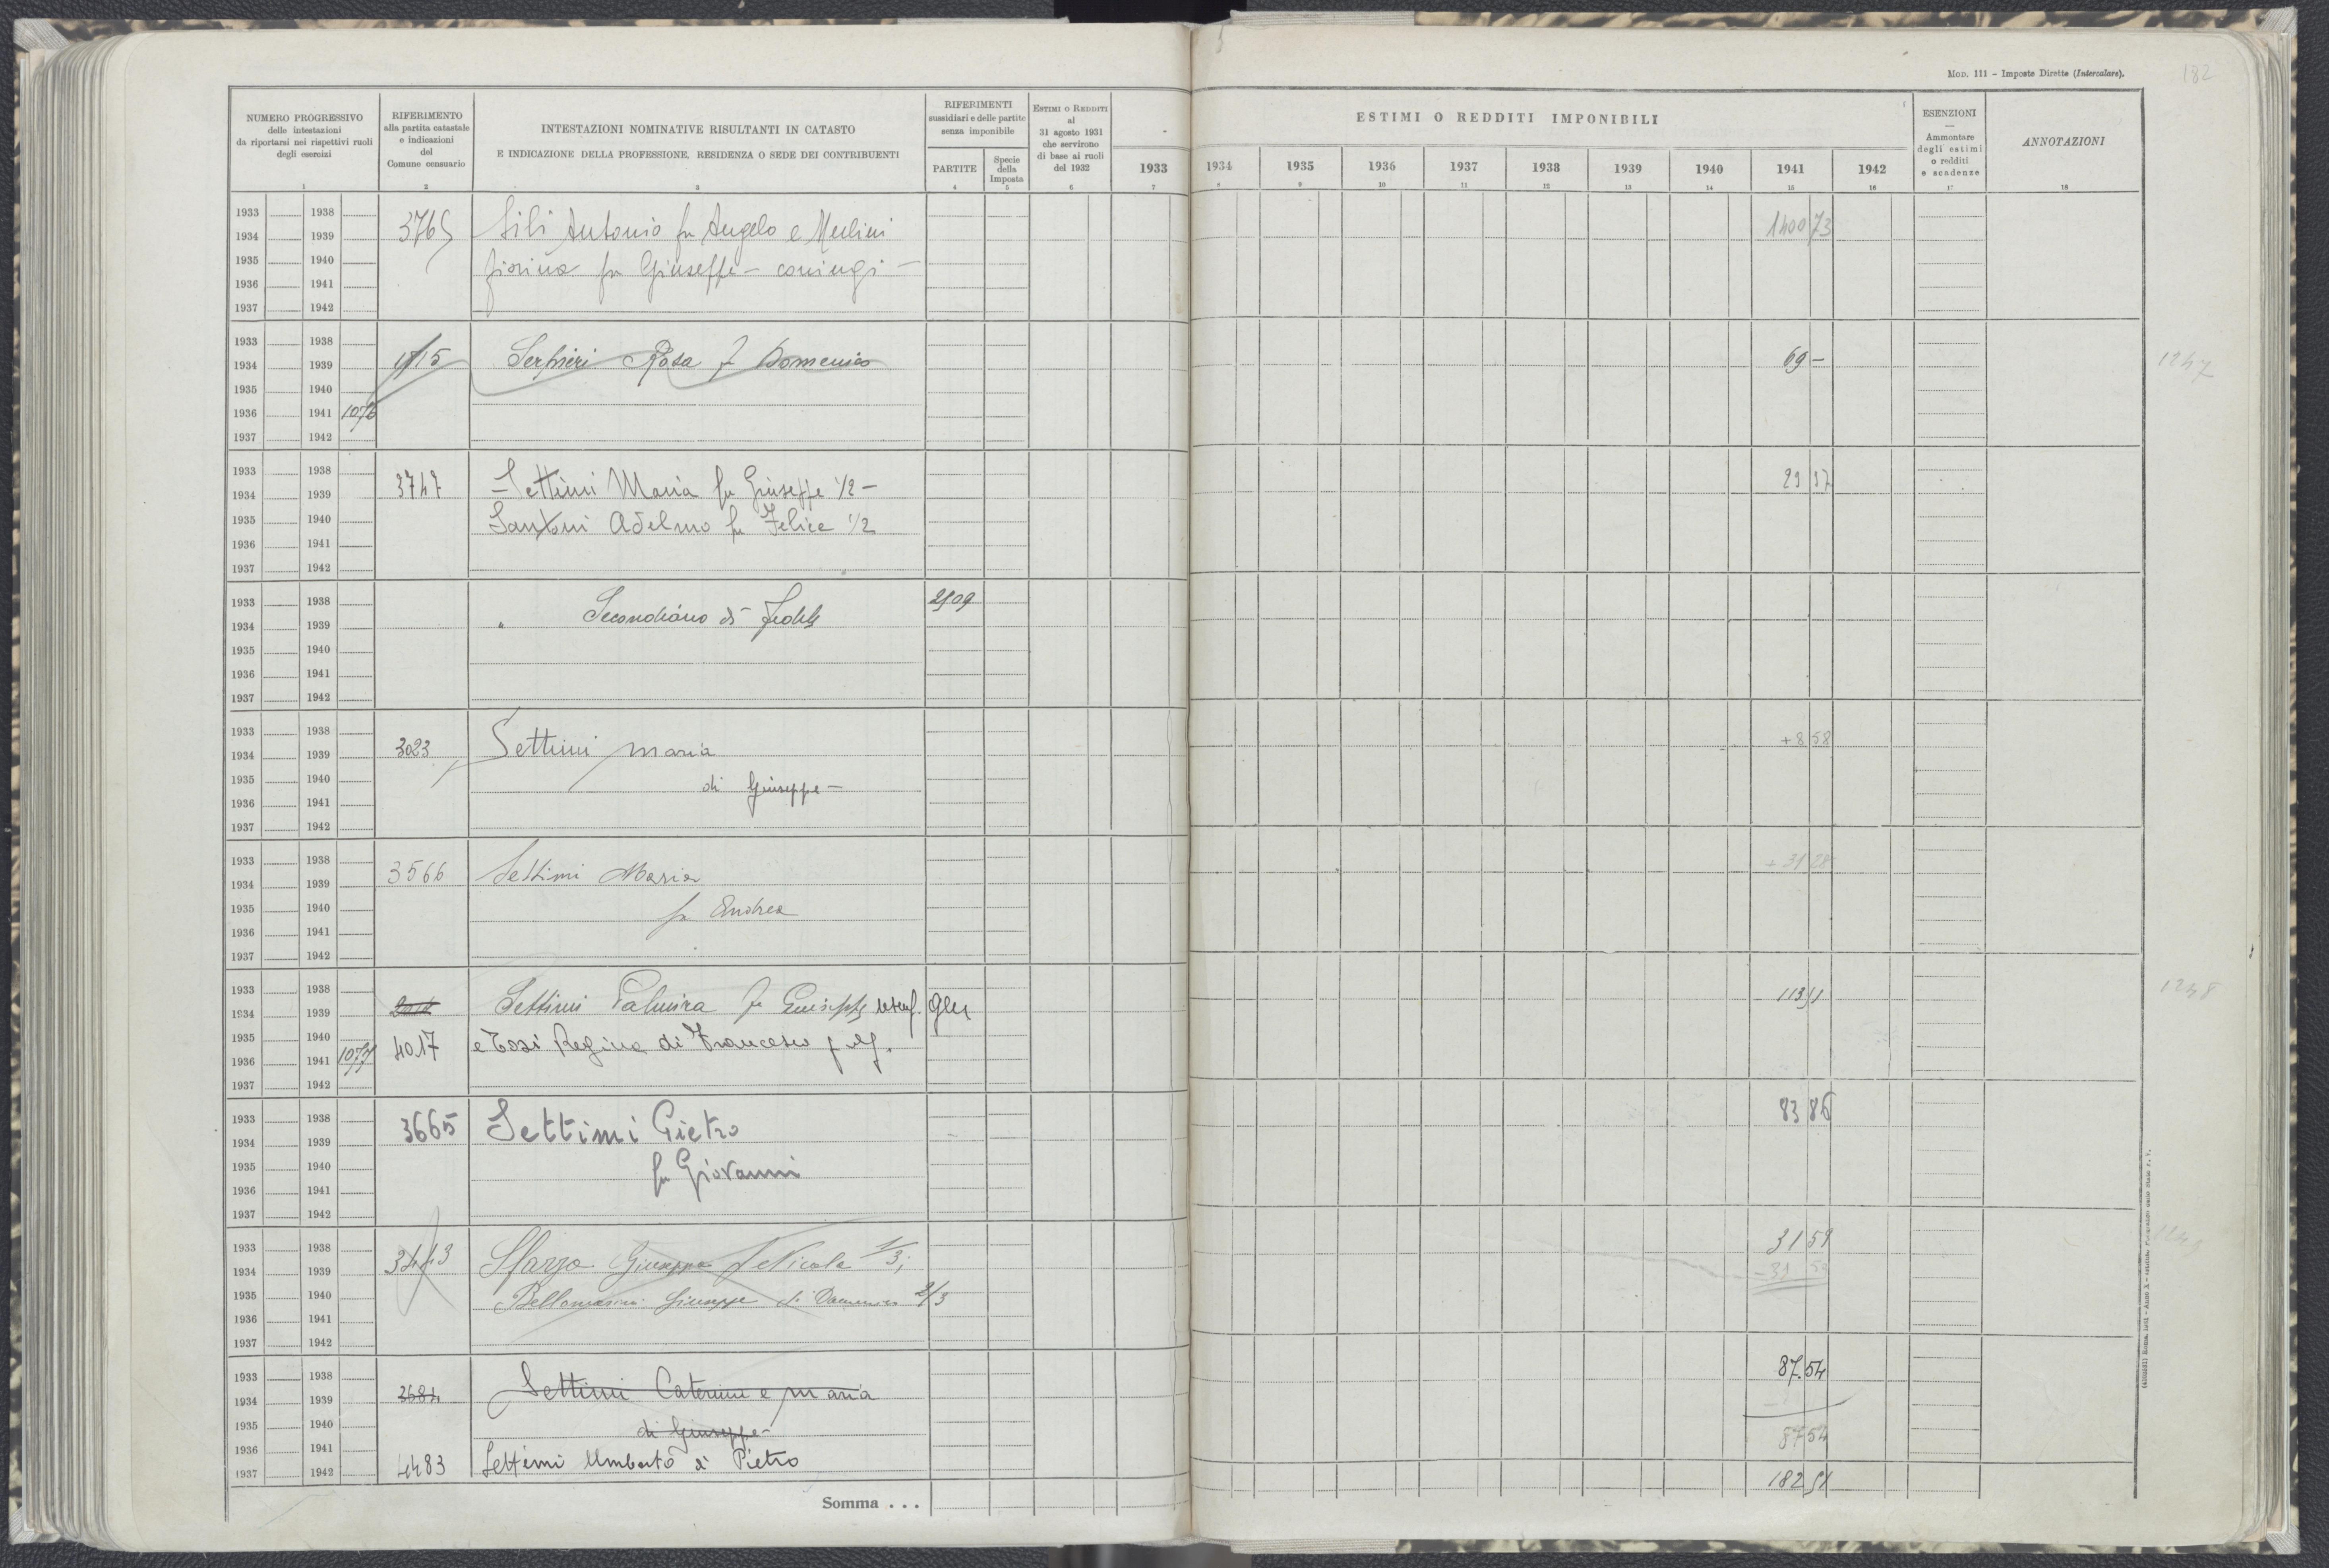 Mod. 111 - Imposte Dirette (Intercalare).
182
NUMERO PROGRESSIVO
delle intestazioni
da riportarsi nei rispettivi ruoli
degli esercizi
1
RIFERIMENTO
alla partita catastale
e indicazioni
del
Comune censuario
2
INTESTAZIONI NOMINATIVE RISULTANTI IN CATASTO
E INDICAZIONE DELLA PROFESSIONE, RESIDENZA O SEDE DEI CONTRIBUENTI
3
RIFERIMENTI
sussidiari e delle partite
senza imponibile
PARTITE
4
Specie
della
Imposta
5
ESTIMI O REDDITI
al
31 agosto 1931
che servirono
di base ai ruoli
del 1932
6
1933
7
ESTIMI O REDDITI IMPONIBILI
1934 1935 1936 1937 1938 1939 1940 1941 1942
8 9 10 11 12 13 14 15 16
ESENZIONI
—
Ammontare
degli estimi
o redditi
e scadenze
17
ANNOTAZIONI
18
1933 1938
1934 1939 3765 Sili Antonio fu Angelo e Merlini 1400 73
1935 1940 fiorina fu Giuseppe - coniugi -
1936 1941
1937 1942
1933 1938
1934 1939 Serfieri Rosa f Domenico 69 - 1247
1935 1940
1936 1941 1076
1937 1942
1933 1938
1934 1939 3747 - Settimi Maria fu Giuseppe 1/2 - 29 97
1935 1940 Santoni Adelmo fu Felice 1/2
1936 1941
1937 1942
1933 1938 2909
1934 1939 " Secondiano di Fedele
1935 1940
1936 1941
1937 1942
1933 1938
1934 1939 3023 Settimi Maria + 8 58
1935 1940 di Giuseppe -
1936 1941
1937 1942
1933 1938
1934 1939 3566 Settimi Maria + 31 28
1935 1940 fu Andrea
1936 1941
1937 1942
1933 1938
1934 1939 Settimi Palmira fu Giuseppe usuf. 113 51 1248
1935 1940 4017 e Tosi Regina di Francesco
1936 1941 1077
1937 1942
1933 1938 3665 Settimi Pietro 83 86
1934 1939
1935 1940 fu Giovanni
1936 1941
1937 1942
1933 1938 31 59 1249
1934 1939 3443 Sforza Giuseppa f Nicola 1/3;
1935 1940 Bellomarini Giuseppe di Domenico 2/3
1936 1941
1937 1942
1933 1938 87.54
1934 1939 3684 Settimi Caterina e Maria
1935 1940 di Giuseppe -
1936 1941 87 54
1937 1942 4483 Settimi Umberto di Pietro 182 51
Somma . . .